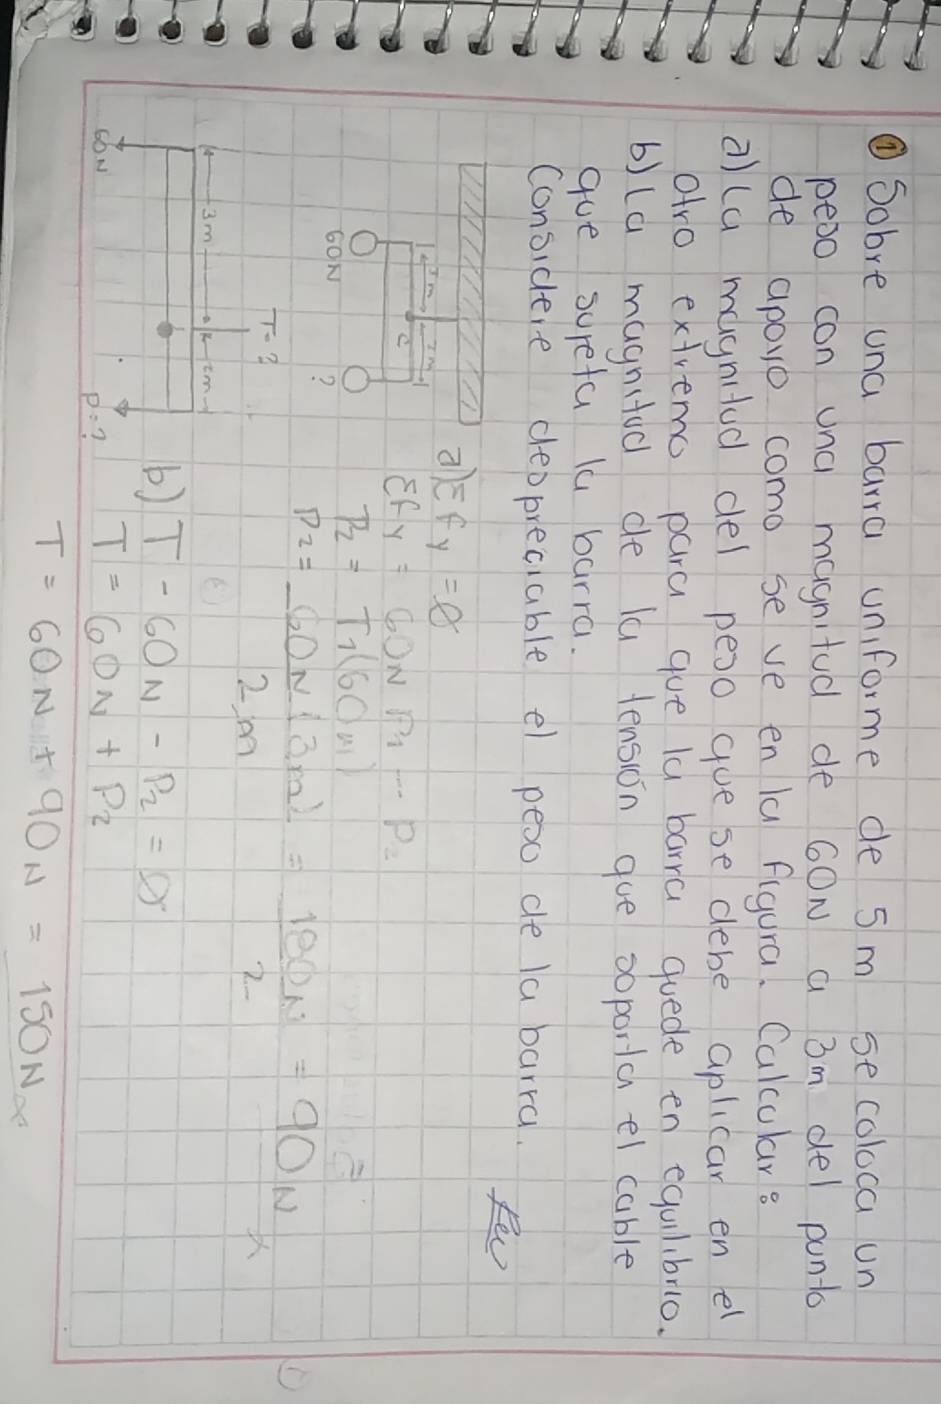 ① Sobre una barra uniforme de 5m se coloca un
peso con una magnitud de 60N a 3m del punto
de apoyo como se ve en la figura. Calcular:
a) La magnitud del peso que se debe aplicar en el
otro extremo para que la barra quede en equilibrio.
b) La magnitud de la tensión que soporta el cable
que sujeta la barra.
Considere despreciable el peso de la barra.
3m 2m
C
60N ?
a) Σfy=0
Σfy = 60N P1 -- P2
P2 = T1(60N)
P2 = 60N(3m) / 2m = 180N / 2 = 90N
T=?
3m 2m
60N P=?
b) T - 60N - P2 = 0
T = 60N + P2
T = 60N + 90N = 150N